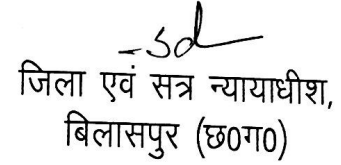 -sd
जिला एवं सत्र न्यायाधीश,
बिलासपुर (छ0ग0)